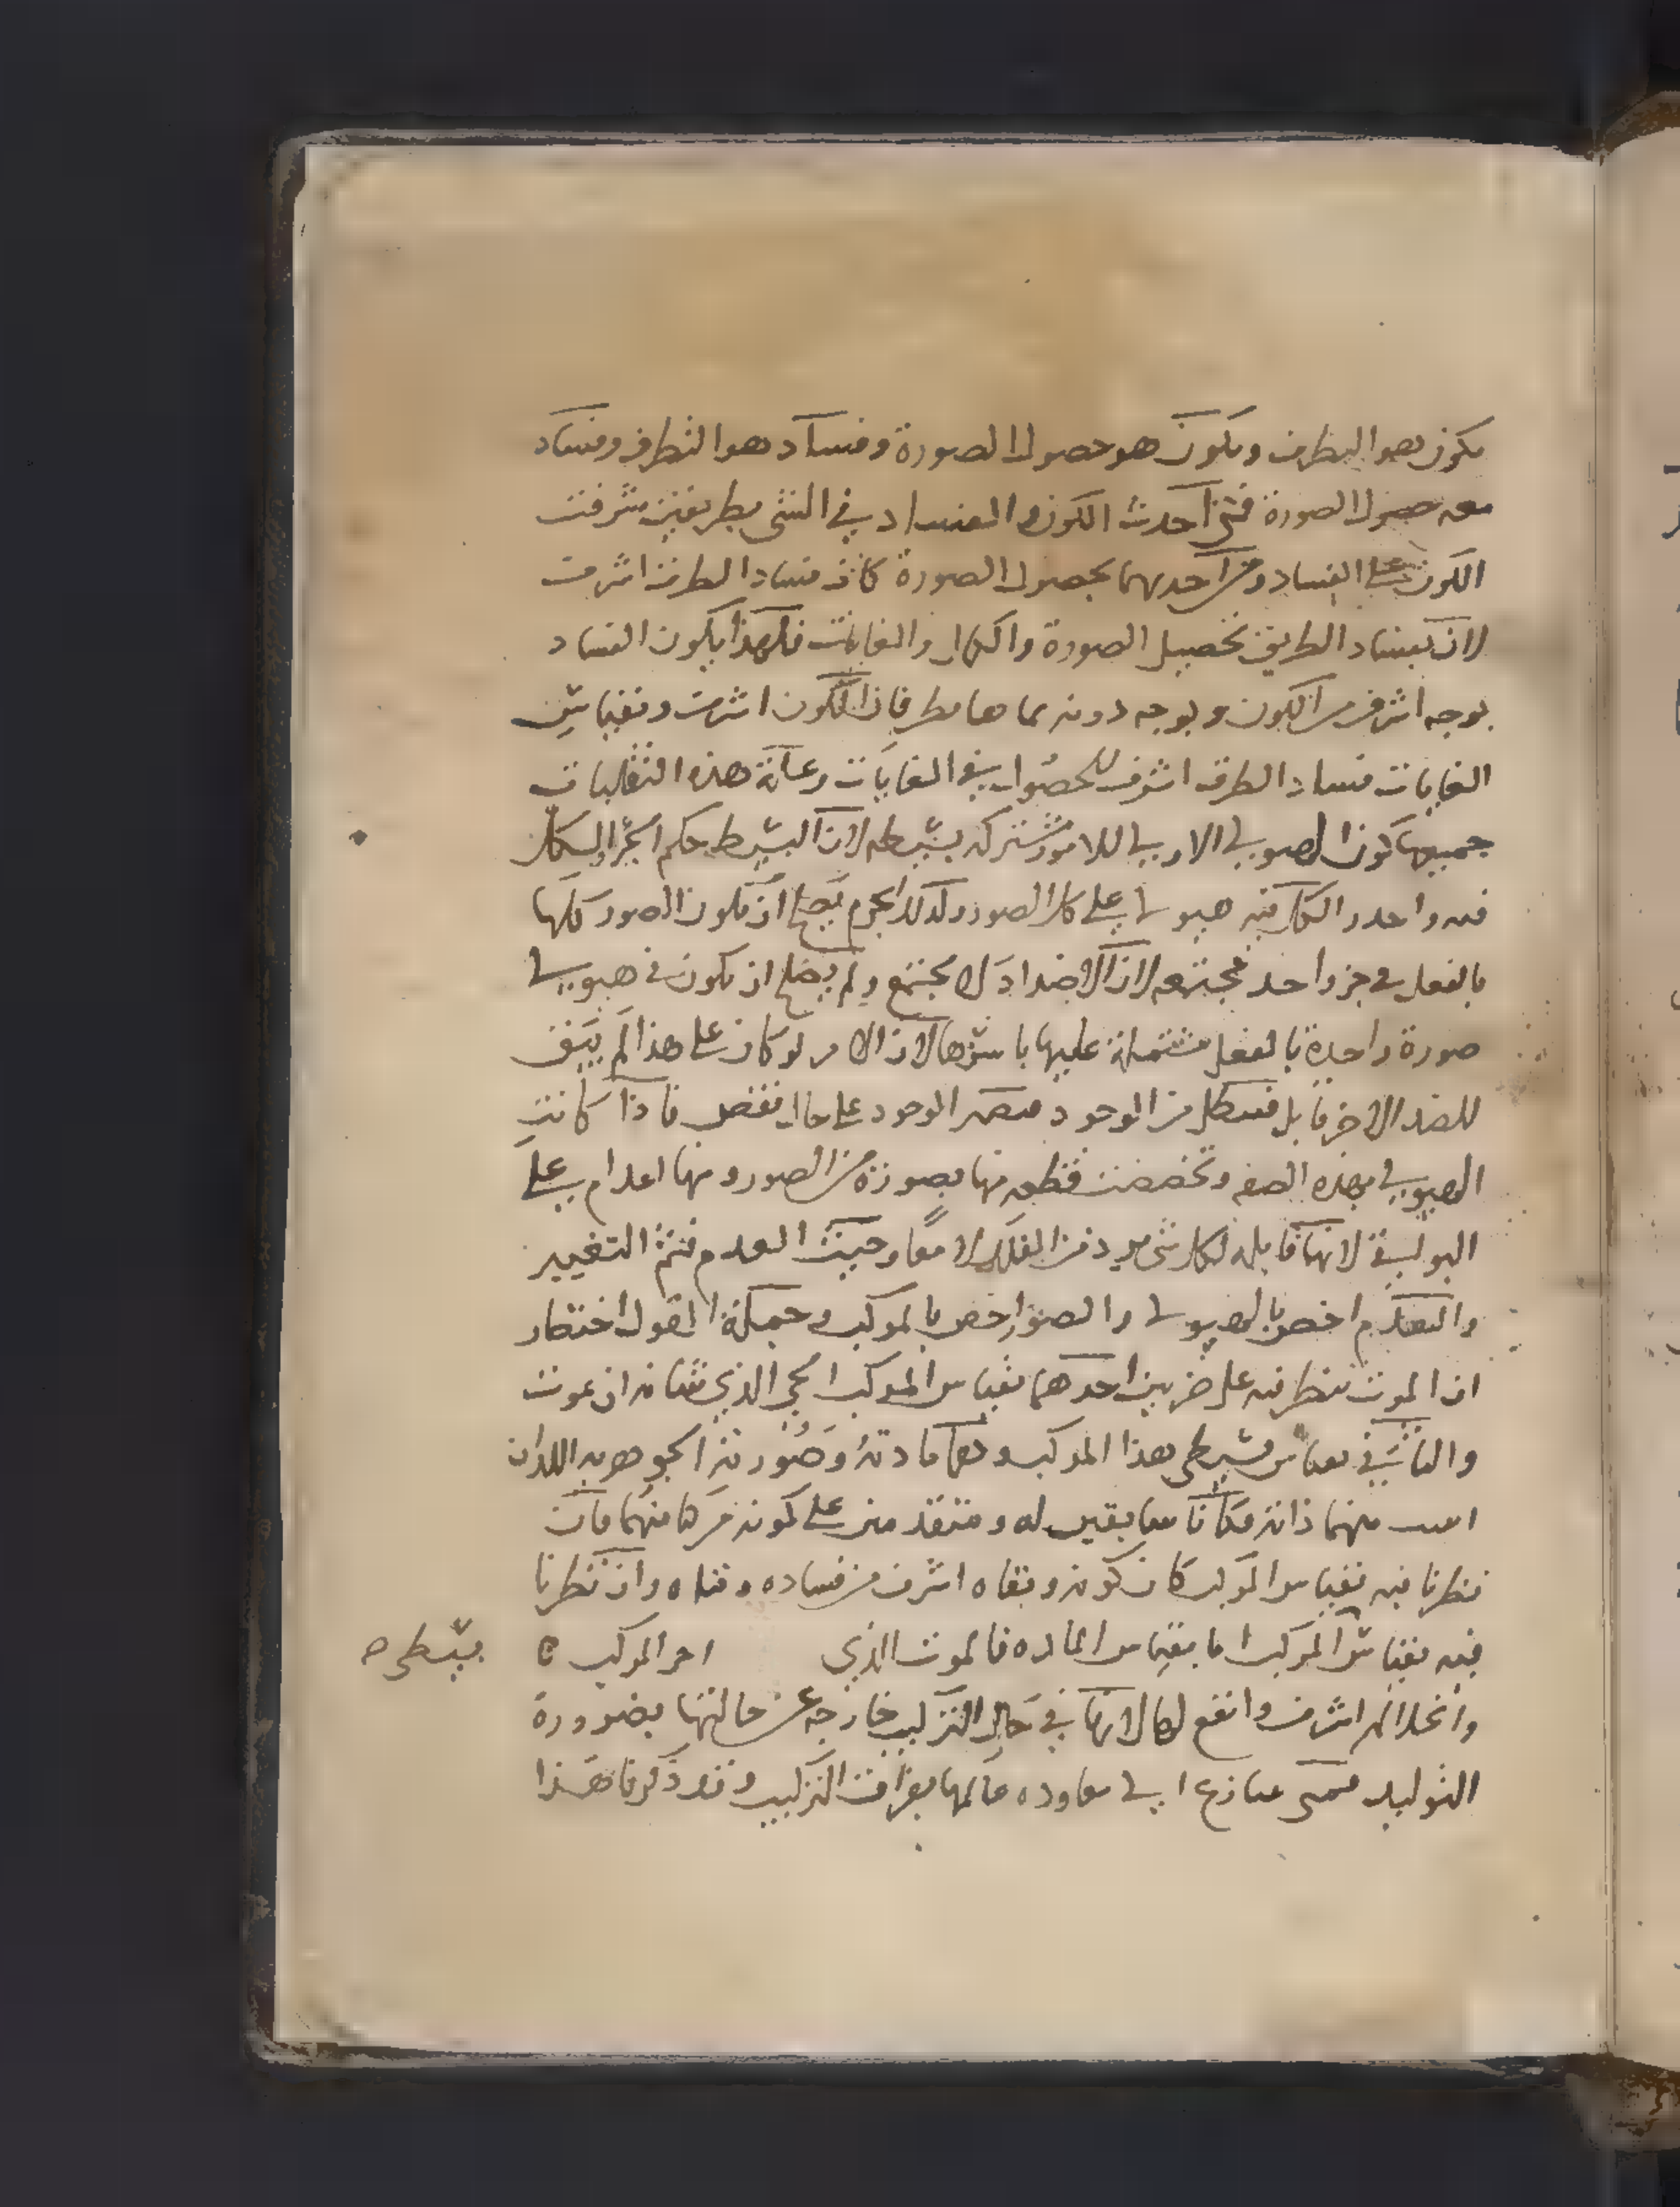 يكون هو الطرف ويكون هو حصول الصورة وفساد هو الطرف وفساد
معه حصول الصورة فمتى احدث الكون والفساد في الشي بطريقين شرفت
الكون على الفساد ومتى احدهما بحصول الصورة كان فساد الطرف اشرف
لان بفساد الطريق تحصيل الصورة والكمال والغايات فلهذا يكون الفساد
بوجه اشرف من الكون وبوجه دونه بما هما طرفان الكون اشرف وبقياس
الغايات فساد الطرف اشرف للحصول في الغايات وعلة هذه التقلبات
جميعها كون الهيولى الاولى للامور مشتركة بسيطة لان البسيط حكم الجزء والكل
فيه واحد والكل فيه هيولى على كل الصور ولذلك لم يصلح ان تكون الصور كلها
بالفعل في جزو احد مجتمعه لان الاضداد لا تجتمع ولم يصلح ان يكون في هيولى
صورة واحدة بالفعل مشتملة عليها باسرها لان الامر لو كان على هذا لم يبق
للضد الاخر قابل فيبطل من الوجود فيصير الوجود على حال نقص فاذا كانت
الهيولى بهذه الصفه وتخصصت قطعه منها بصورة من الصور ومنها اعدام على
البواقي لانها قابله لكل شي لا معا وحيث العدم فثم التغيير
والعدم اخص بالهيولى والصور اخص بالمركب وجملة القول اختصار
ان الموت ينظر فيه على ضربين احدهما بقياس المركب الحي الذي شانه ان يموت
والثاني بقياس بسيطي هذا المركب وهما مادته وصورته الجوهريه اللذان
منهما ذاته فكانا سابقين له ومتقدمين على كونه مركبا منهما فان
نظرنا فيه بقياس المركب كان كونه وبقاه اشرف من فساده وفناه وان نظرنا
فيه بقياس المركب اما بقياس الماده فالموت الذي احر المركب
بسيطي ه
وانحلاله اشرف وانفع لها لانها في حال التركيب خارجه عن حالتها بضرورة
التوليد فمتى الى معاوده عالمها بفراق التركيب وقد ذكرنا هذا